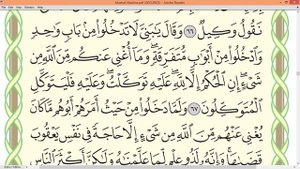 Mushaf Madina.pdf (SECURED) - Adobe Reader
نَقُولُ وَكِيلٌ ٦٦ وَقَالَ يَٰبَنِىَّ لَا تَدْخُلُوا۟ مِنۢ بَابٍ وَٰحِدٍ
وَٱدْخُلُوا۟ مِنْ أَبْوَٰبٍ مُّتَفَرِّقَةٍ ۖ وَمَآ أُغْنِى عَنكُم مِّنَ ٱللَّهِ مِن
شَىْءٍ ۖ إِنِ ٱلْحُكْمُ إِلَّا لِلَّهِ ۖ عَلَيْهِ تَوَكَّلْتُ ۖ وَعَلَيْهِ فَلْيَتَوَكَّلِ
ٱلْمُتَوَكِّلُونَ ٦٧ وَلَمَّا دَخَلُوا۟ مِنْ حَيْثُ أَمَرَهُمْ أَبُوهُم مَّا كَانَ
يُغْنِى عَنْهُم مِّنَ ٱللَّهِ مِن شَىْءٍ إِلَّا حَاجَةً فِى نَفْسِ يَعْقُوبَ
قَضَىٰهَا ۚ وَإِنَّهُۥ لَذُو عِلْمٍ لِّمَا عَلَّمْنَٰهُ وَلَٰكِنَّ أَكْثَرَ ٱلنَّاسِ